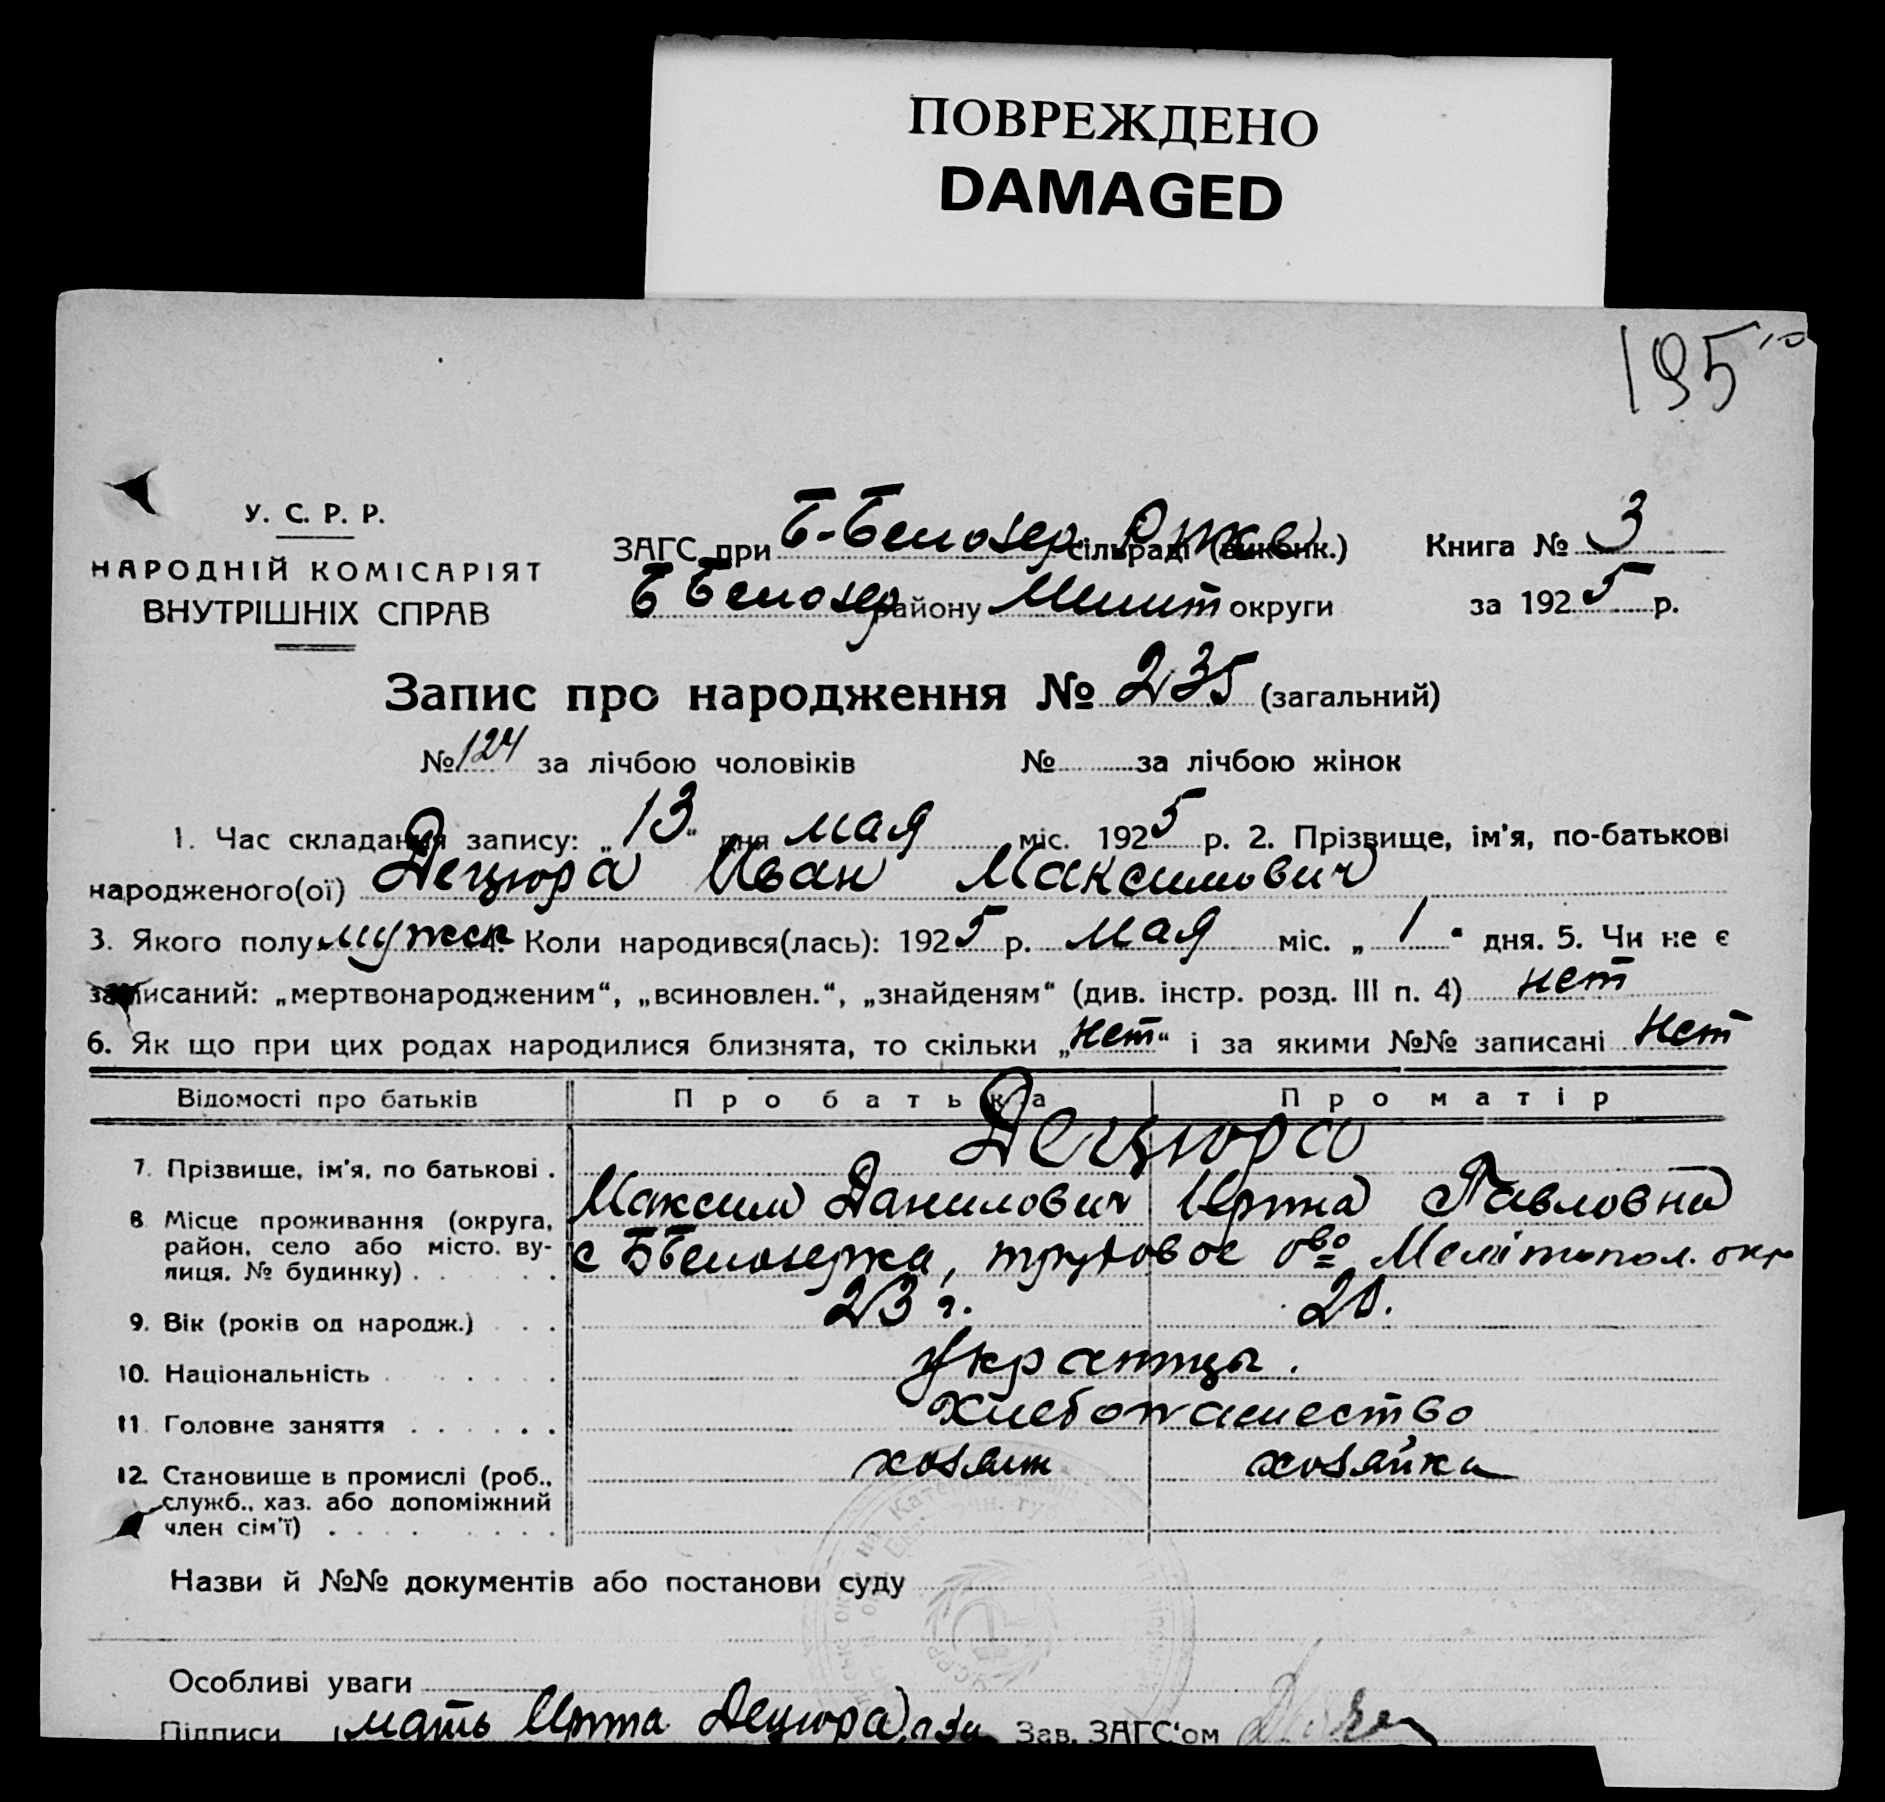 ПОВРЕЖДЕНО
DAMAGED
195
У. С. Р. Р.
НАРОДНІЙ КОМІСАРІЯТ
ВНУТРІШНІХ СПРАВ
ЗАГС при Б-Белозер. сільраді (виконк.) Книга № 3
Б Белозер району Мелит округи за 1925 р.
Запис про народження № 235 (загальний)
№ 124 за лічбою чоловіків № за лічбою жінок
1. Час складання запису: „13“ дня мая міс. 1925 р. 2. Прізвище, ім'я, по-батькові
народженого(ої) Децюра Иван Максимович
3. Якого полу мужск 4. Коли народився(лась): 1925 р. мая міс. „1“ дня. 5. Чи не є
записаний: „мертвонародженим“, „всиновлен.“, „знайденям“ (див. інстр. розд. III п. 4) нет
6. Як що при цих родах народилися близнята, то скільки „нет“ і за якими №№ записані нет
Відомості про батьків Про батька Про матір
Децюра
7. Прізвище, ім'я, по батькові . Максим Данилович Ирина Павловна
8 Місце проживання (округа,
район, село або місто, ву-
лиця, № будинку) с ББелозерка, трудовое ово Мелітопол. окр
9. Вік (років од народж.) 23 г. 20.
10. Національність Украинцы.
11. Головне заняття хлебопашество
12. Становище в промислі (роб.,
служб., хаз. або допоміжний
член сім'ї) хозяин хозяйка
Назви й №№ документів або постанови суду
Особливі уваги
Підписи мать Ирина Децюра Зав. ЗАГС'ом